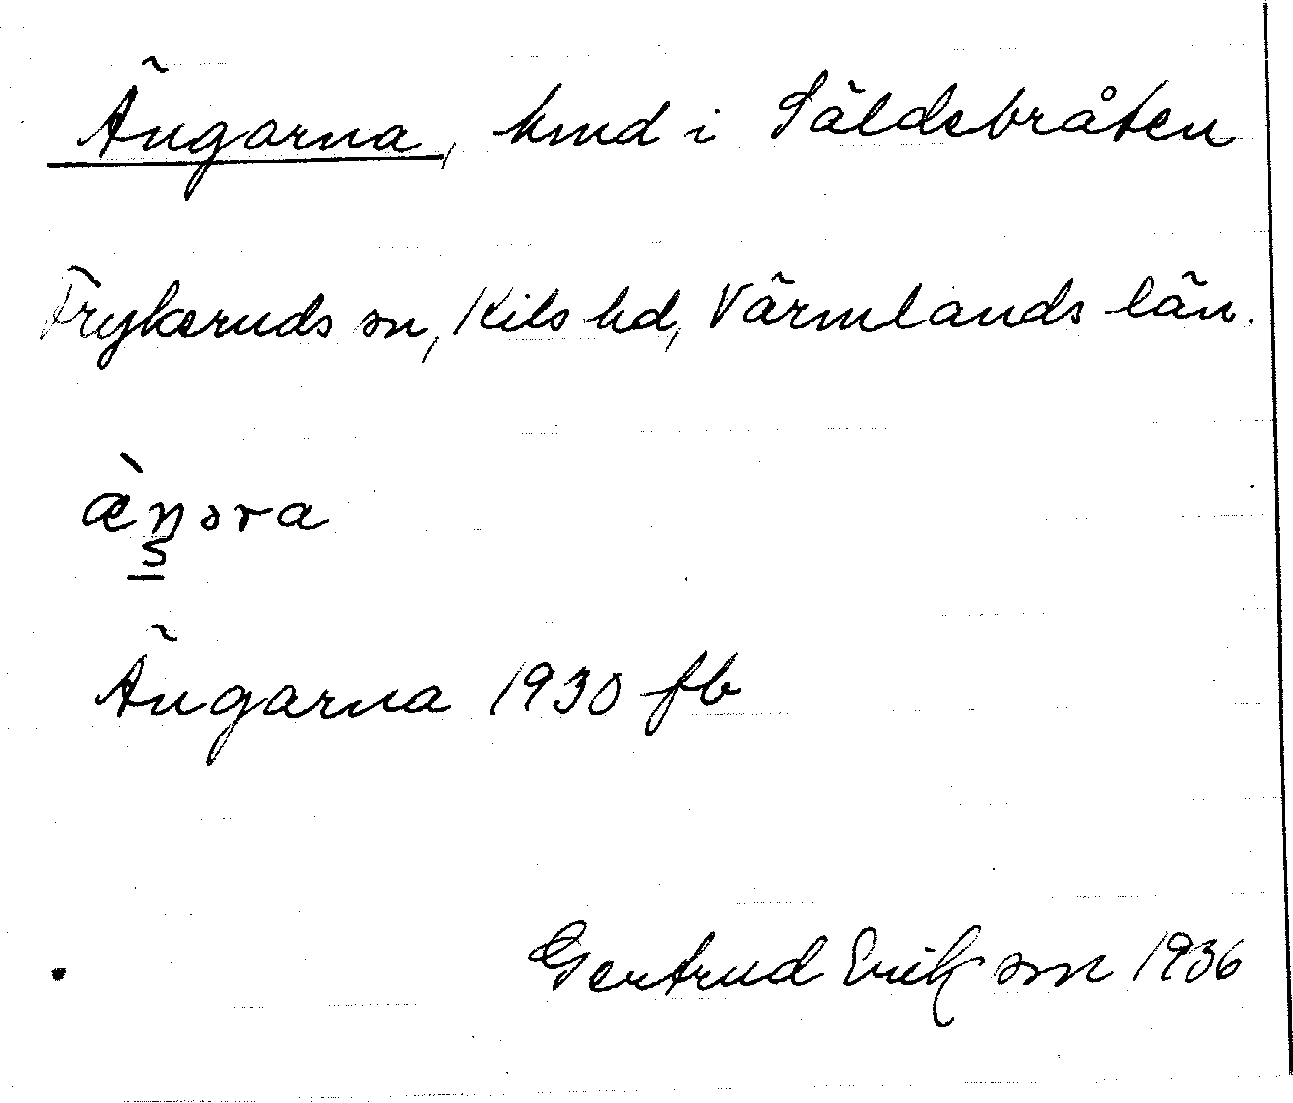 Ängarna, hmd i Säldebråten
Frykeruds sn, Kils hd, Värmlands län.
æ̀ŋəra
5
Ängarna 1930 fb
Gertrud Erikson 1936